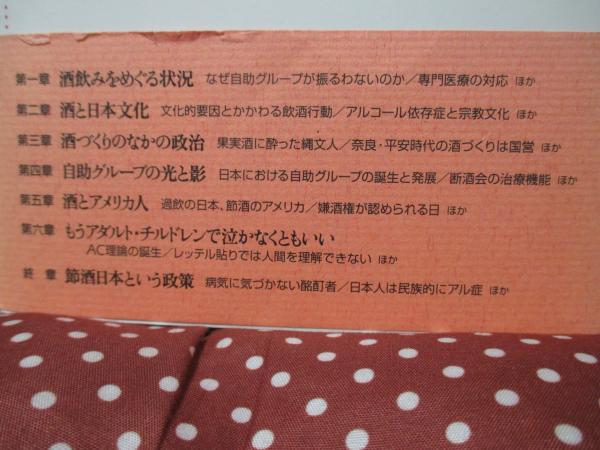 第一章 酒飲みをめぐる状況 なぜ自助グループが振るわないのか／専門医療の対応 ほか
第二章 酒と日本文化 文化的要因とかかわる飲酒行動／アルコール依存症と宗教文化 ほか
第三章 酒づくりのなかの政治 果実酒に酔った縄文人／奈良・平安時代の酒づくりは国営 ほか
第四章 自助グループの光と影 日本における自助グループの誕生と発展／断酒会の治療機能 ほか
第五章 酒とアメリカ人 過飲の日本、節酒のアメリカ／嫌酒権が認められる日 ほか
第六章 もうアダルト・チルドレンで泣かなくともいい
AC理論の誕生／レッテル貼りでは人間を理解できない ほか
終 章 節酒日本という政策 病気に気づかない酩酊者／日本人は民族的にアル症 ほか